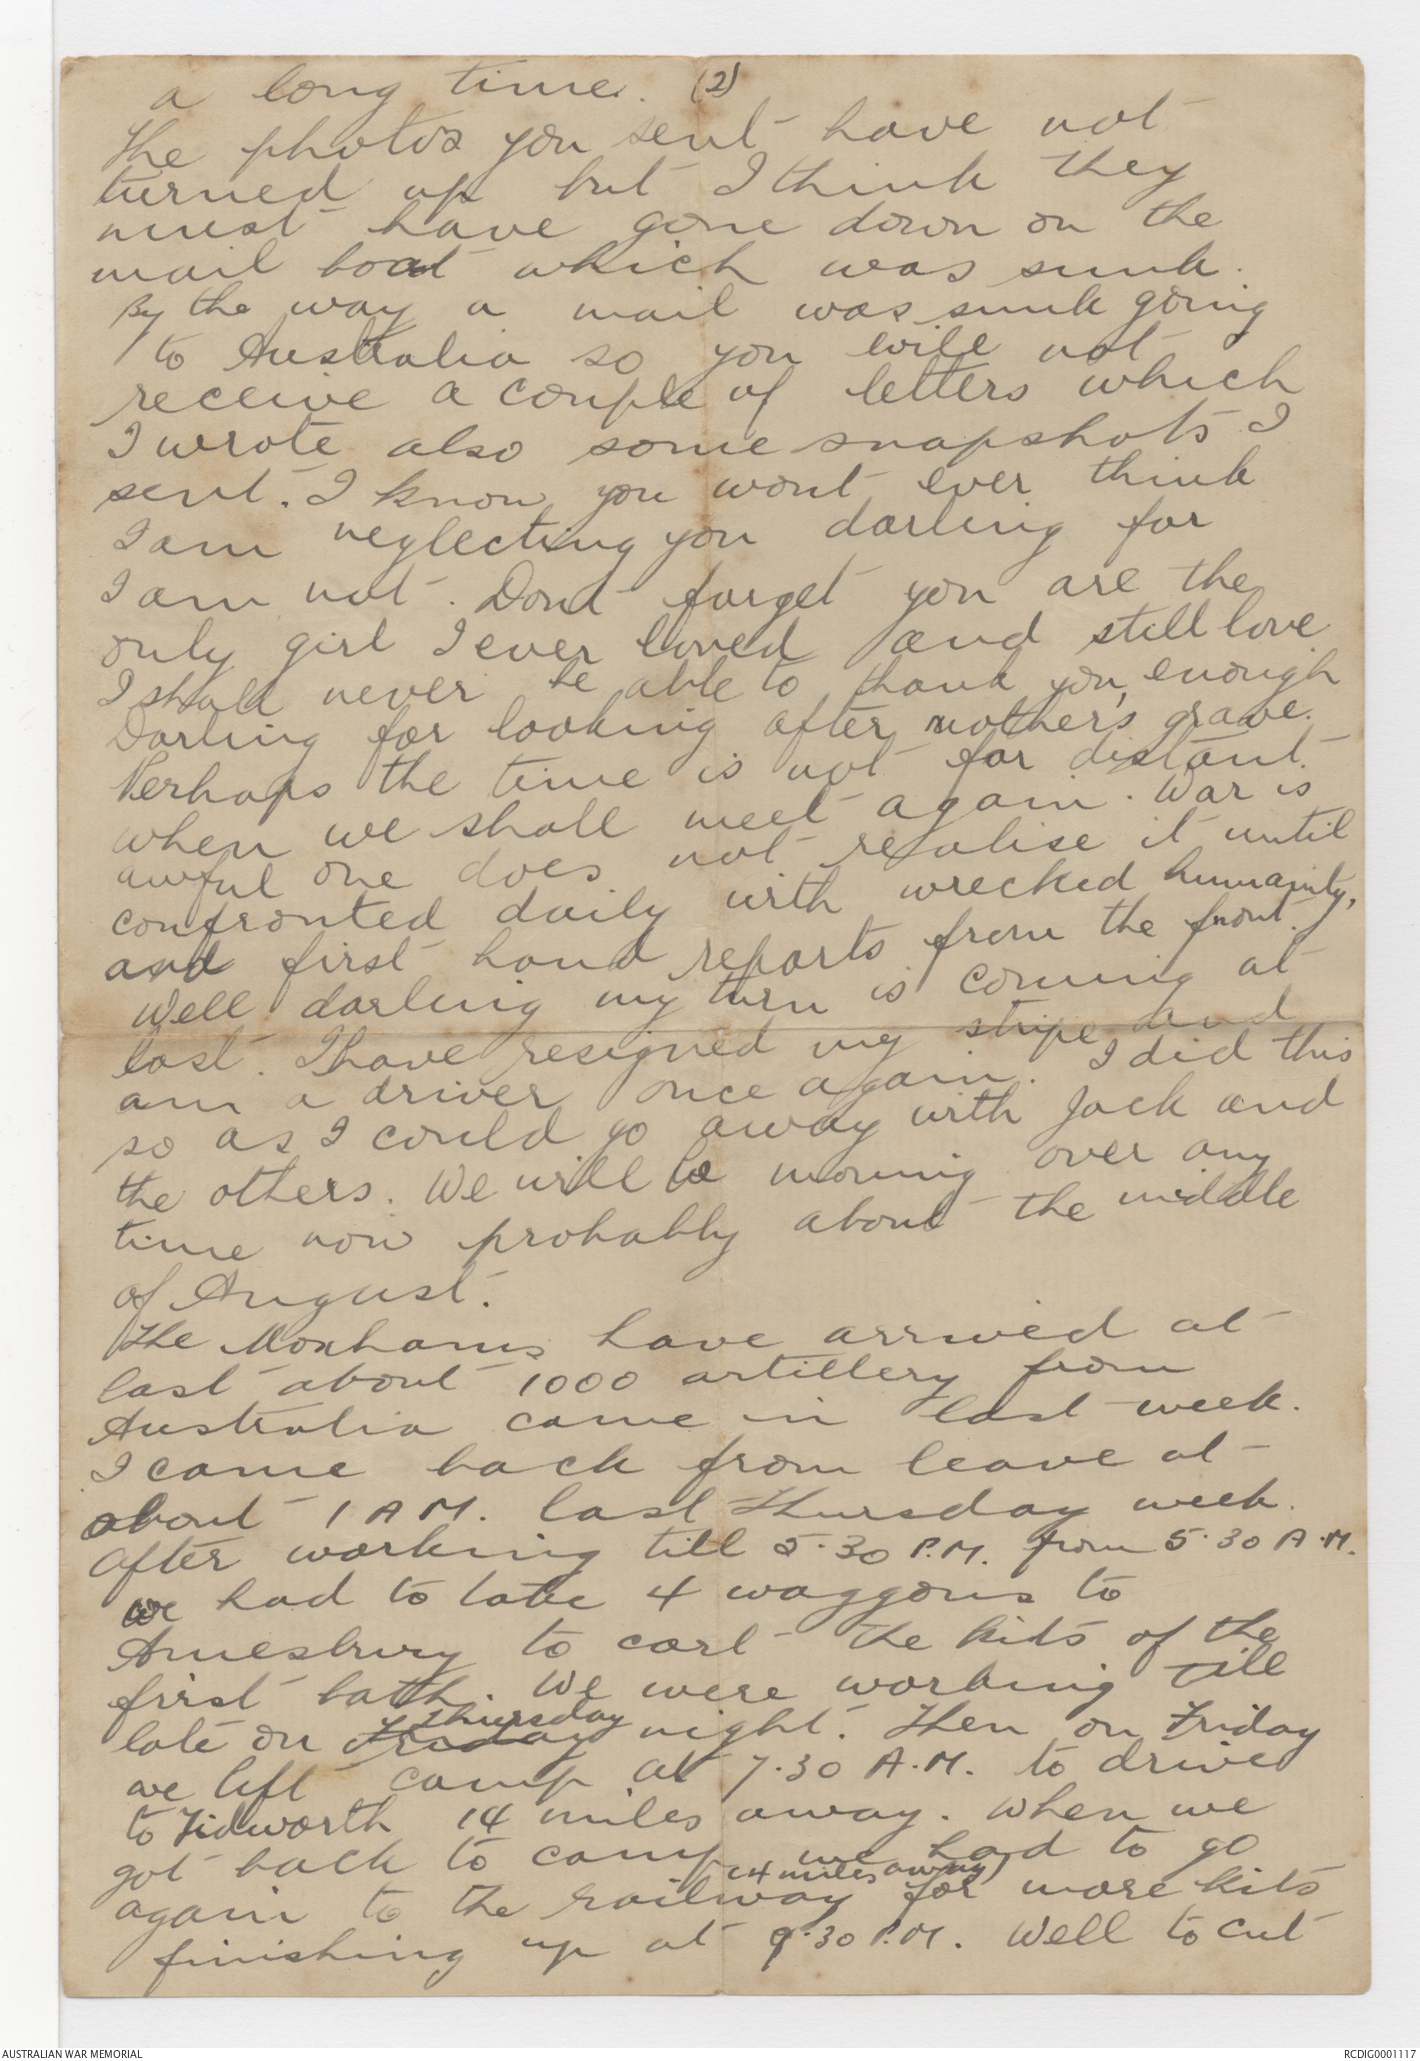 (2)
a long time.
The photos you sent have not
turned up but I think they
must have gone down on the
mail boat which was sunk.
By the way a mail was sunk going
to Australia so you will not
receive a couple of letters which
I wrote also some snapshots I
sent. I know you wont ever think
I am neglecting you darling for
I am not. Dont forget you are the
only girl I ever loved and still love
I shall never be able to thank you enough
Darling for looking after mother's grave.
Perhaps the time is not far distant
when we shall meet again. War is
awful one does not realise it until
confronted daily with wrecked humanity,
and first hand reports from the front.
Well darling my turn is coming at
last. I have resigned my stripe and
am a driver once again. I did this
so as I could go away with Jack and
the others. We will be moving over any
time now probably about the middle
of August.
The Moxhams have arrived at
last about 1000 artillery from
Australia came in last week.
I came back from leave at
about 1 AM. last Thursday week.
After working till 5.30 P.M. from 5.30 A.M.
we had to take 4 waggons to
Amesbury to cart the kits of the
first batch. We were working till
late on Friday Thursday night. Then on Friday
we left camp at 7.30 A.M. to drive
to Tidworth 14 miles away. When we
got back to camp we had to go
again to the railway (4 miles away) for more kits
finishing up at 9.30 P.M. Well to cut
AUSTRALIAN WAR MEMORIAL
RCDIG0001117